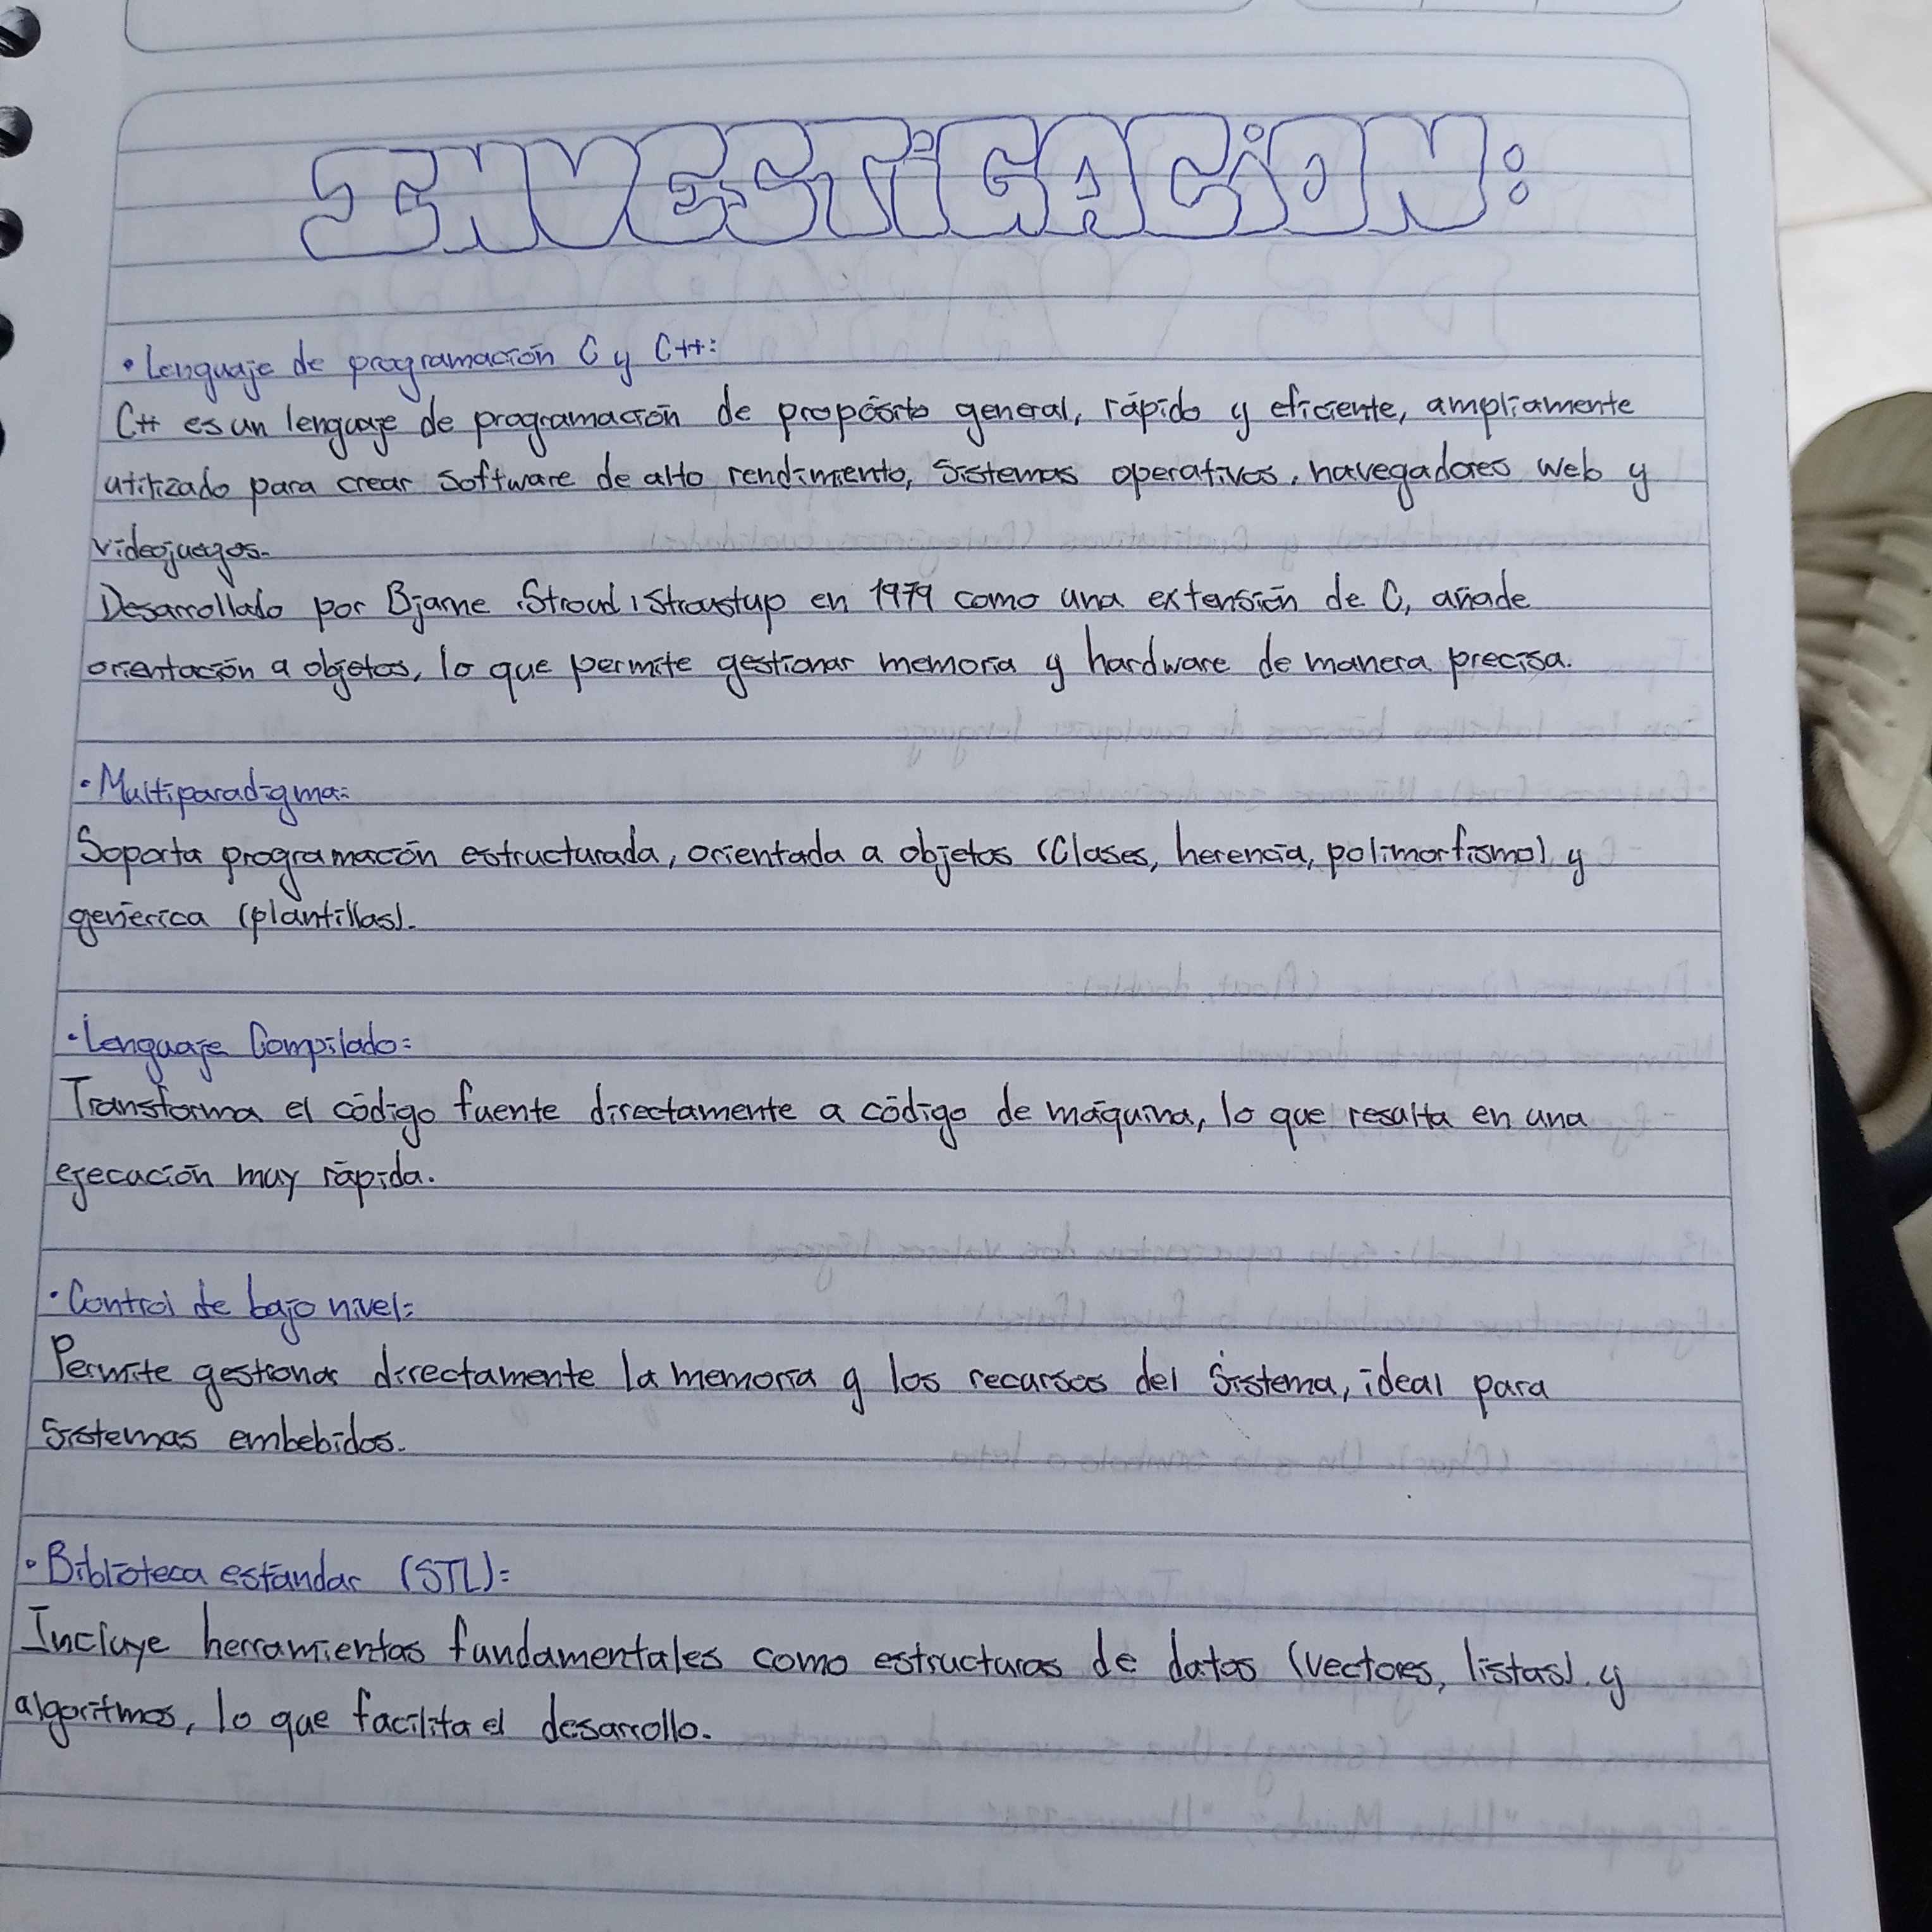 INVESTIGACIÓN:
• Lenguaje de programación C y C++:
C++ es un lenguaje de programación de propósito general, rápido y eficiente, ampliamente
utilizado para crear software de alto rendimiento, sistemas operativos, navegadores web y
videojuegos.
Desarrollado por Bjarne Stroud, Stroustup en 1979 como una extensión de C, añade
orientación a objetos, lo que permite gestionar memoria y hardware de manera precisa.
• Multiparadigma:
Soporta programación estructurada, orientada a objetos (Clases, herencia, polimorfismo) y
genérica (plantillas).
• Lenguaje Compilado:
Transforma el código fuente directamente a código de máquina, lo que resulta en una
ejecución muy rápida.
• Control de bajo nivel:
Permite gestionar directamente la memoria y los recursos del sistema, ideal para
sistemas embebidos.
• Biblioteca estándar (STL):
Incluye herramientas fundamentales como estructuras de datos (vectores, listas) y
algoritmos, lo que facilita el desarrollo.